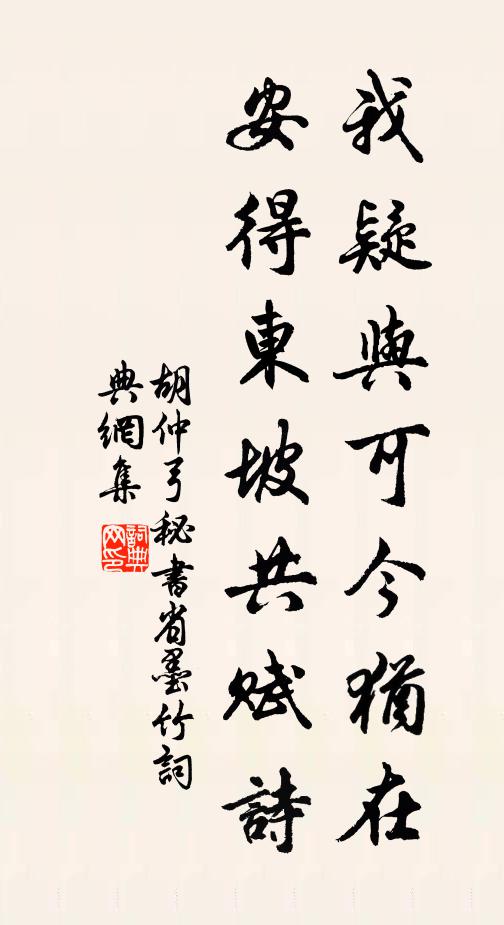 我疑與可今猶在
安得東坡共賦詩
胡仲弓秘書省墨竹詞
典網集
詞典網印